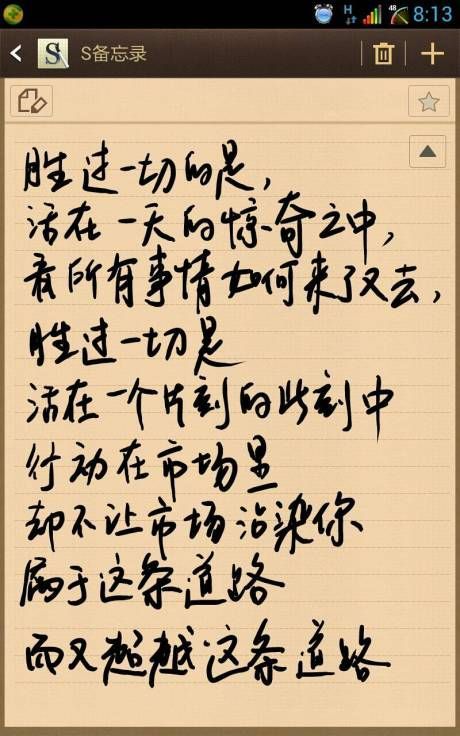 48
8:13
S备忘录
胜过一切的是，
活在一天的惊奇之中，
看所有事情如何来了又去，
胜过一切是
活在一个片刻的此刻中
行动在市场里
却不让市场沾染你
属于这条道路
而又超越这条道路